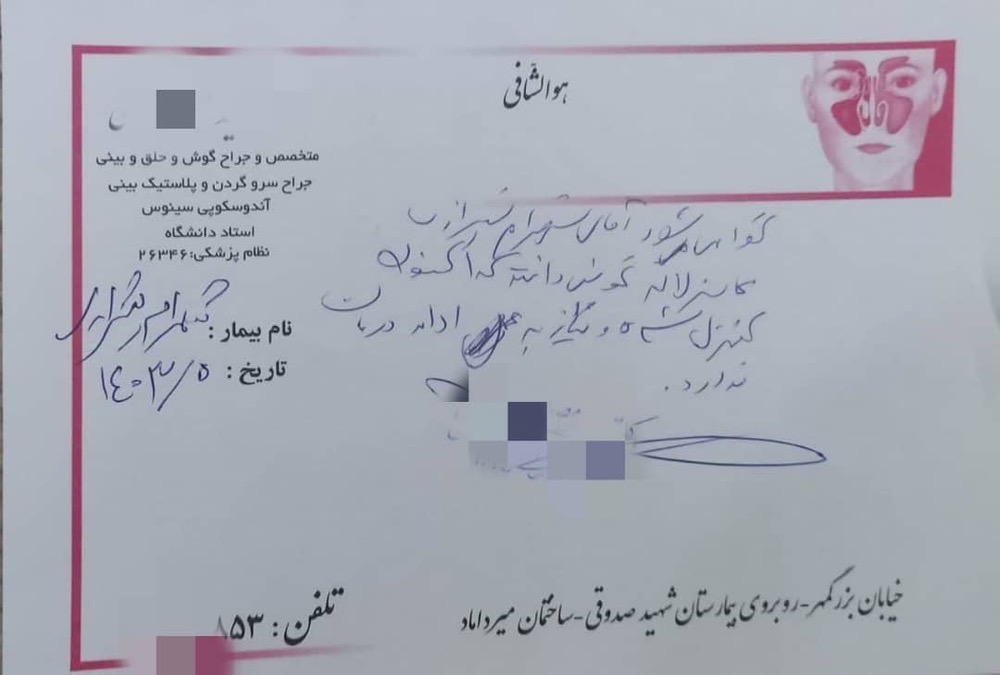 هوالشافی
متخصص و جراح گوش و حلق و بینی
جراح سر و گردن و پلاستیک بینی
آندوسکوپی سینوس
استاد دانشگاه
نظام پزشکی: ۲۶۳۴۶
نام بیمار :
تاریخ : ۱۴۰۳/۵
گواهی میشود آقای شهرام
لاله گوش داشته که اکنون
کنترل شده و نیاز به ادامه درمان
ندارد.
خیابان بزرگمهر-روبروی بیمارستان شهید صدوقی-ساختمان میرداماد
تلفن : ۸۵۳